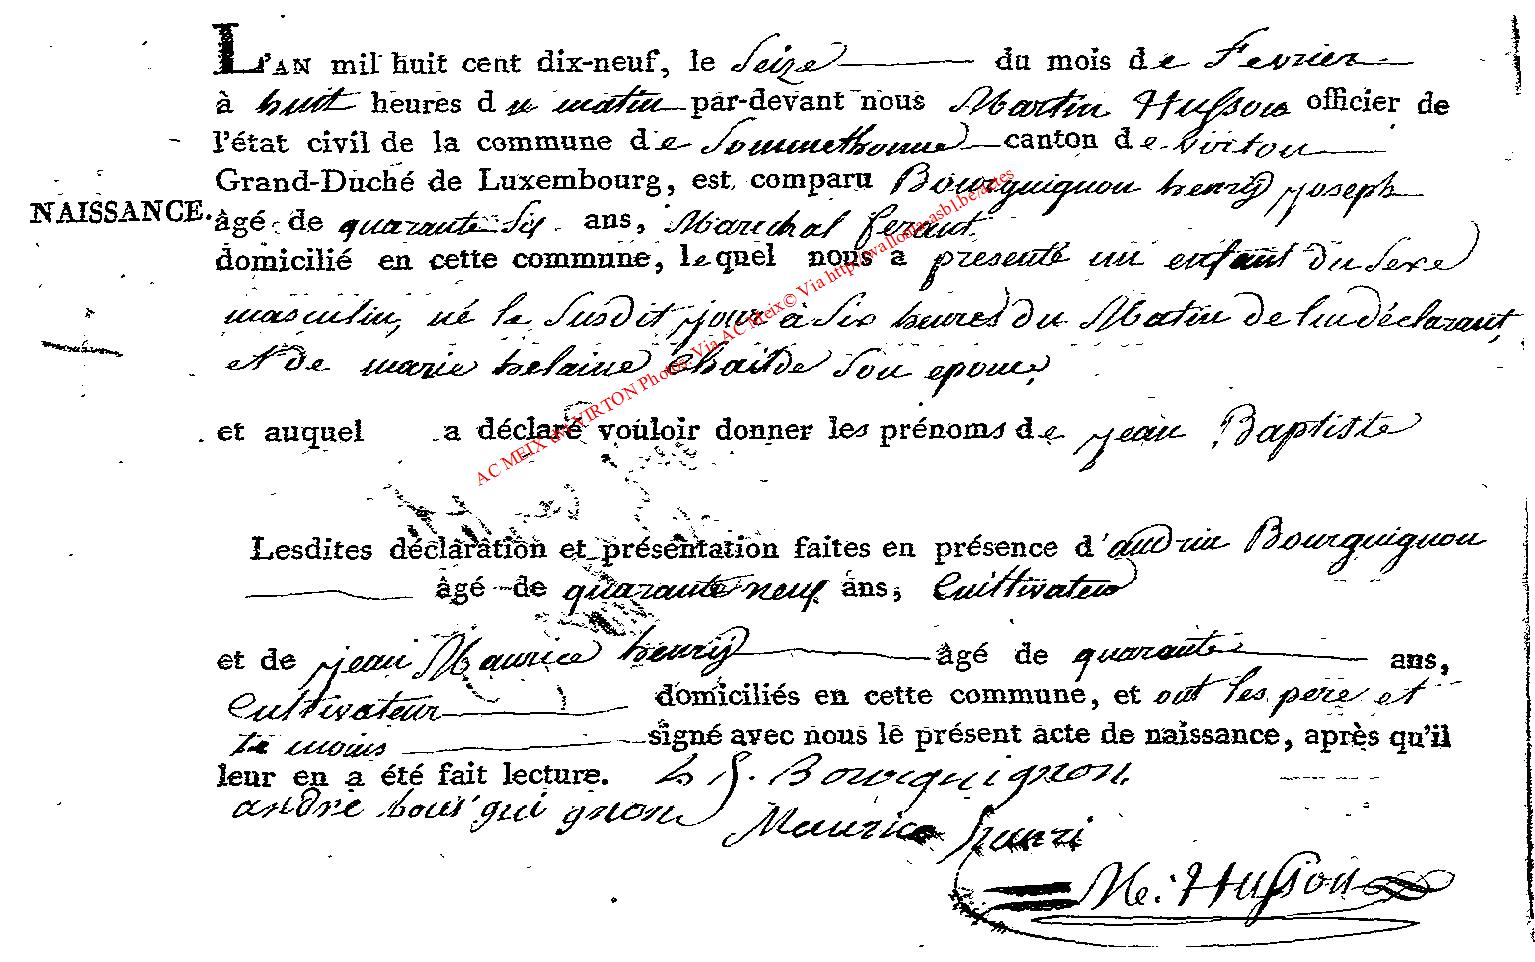 L'AN mil huit cent dix-neuf, le Seize du mois de Fevrier
à huit heures du matin par-devant nous Martin Husson officier de
l'état civil de la commune de Sommethonne canton de virton
Grand-Duché de Luxembourg, est comparu Bourguignon henry joseph
NAISSANCE. âgé de quarante Six ans, Marechal ferant
domicilié en cette commune, lequel nous a presenté un enfant du Sexe
masculin, né le Susdit jour à Six heures du Matin de lui déclarant,
et de marie helaine son epouse,
et auquel a déclaré vouloir donner les prénoms de jean Baptiste
Lesdites déclaration et présentation faites en présence d'andrie Bourguignon
âgé de quarante neuf ans, Cultivateur
et de jean Maurice henry âgé de quarante ans,
Cultivateur domiciliés en cette commune, et ont les pere et
te moins signé avec nous le présent acte de naissance, après qu'il
leur en a été fait lecture. h J. Bourguignon.
andré bour gui gnon Maurice hanri
M. Husson
AC MEIX dvt VIRTON Photos Via AC Meix© Via http://wallonia-asbl.be/actes